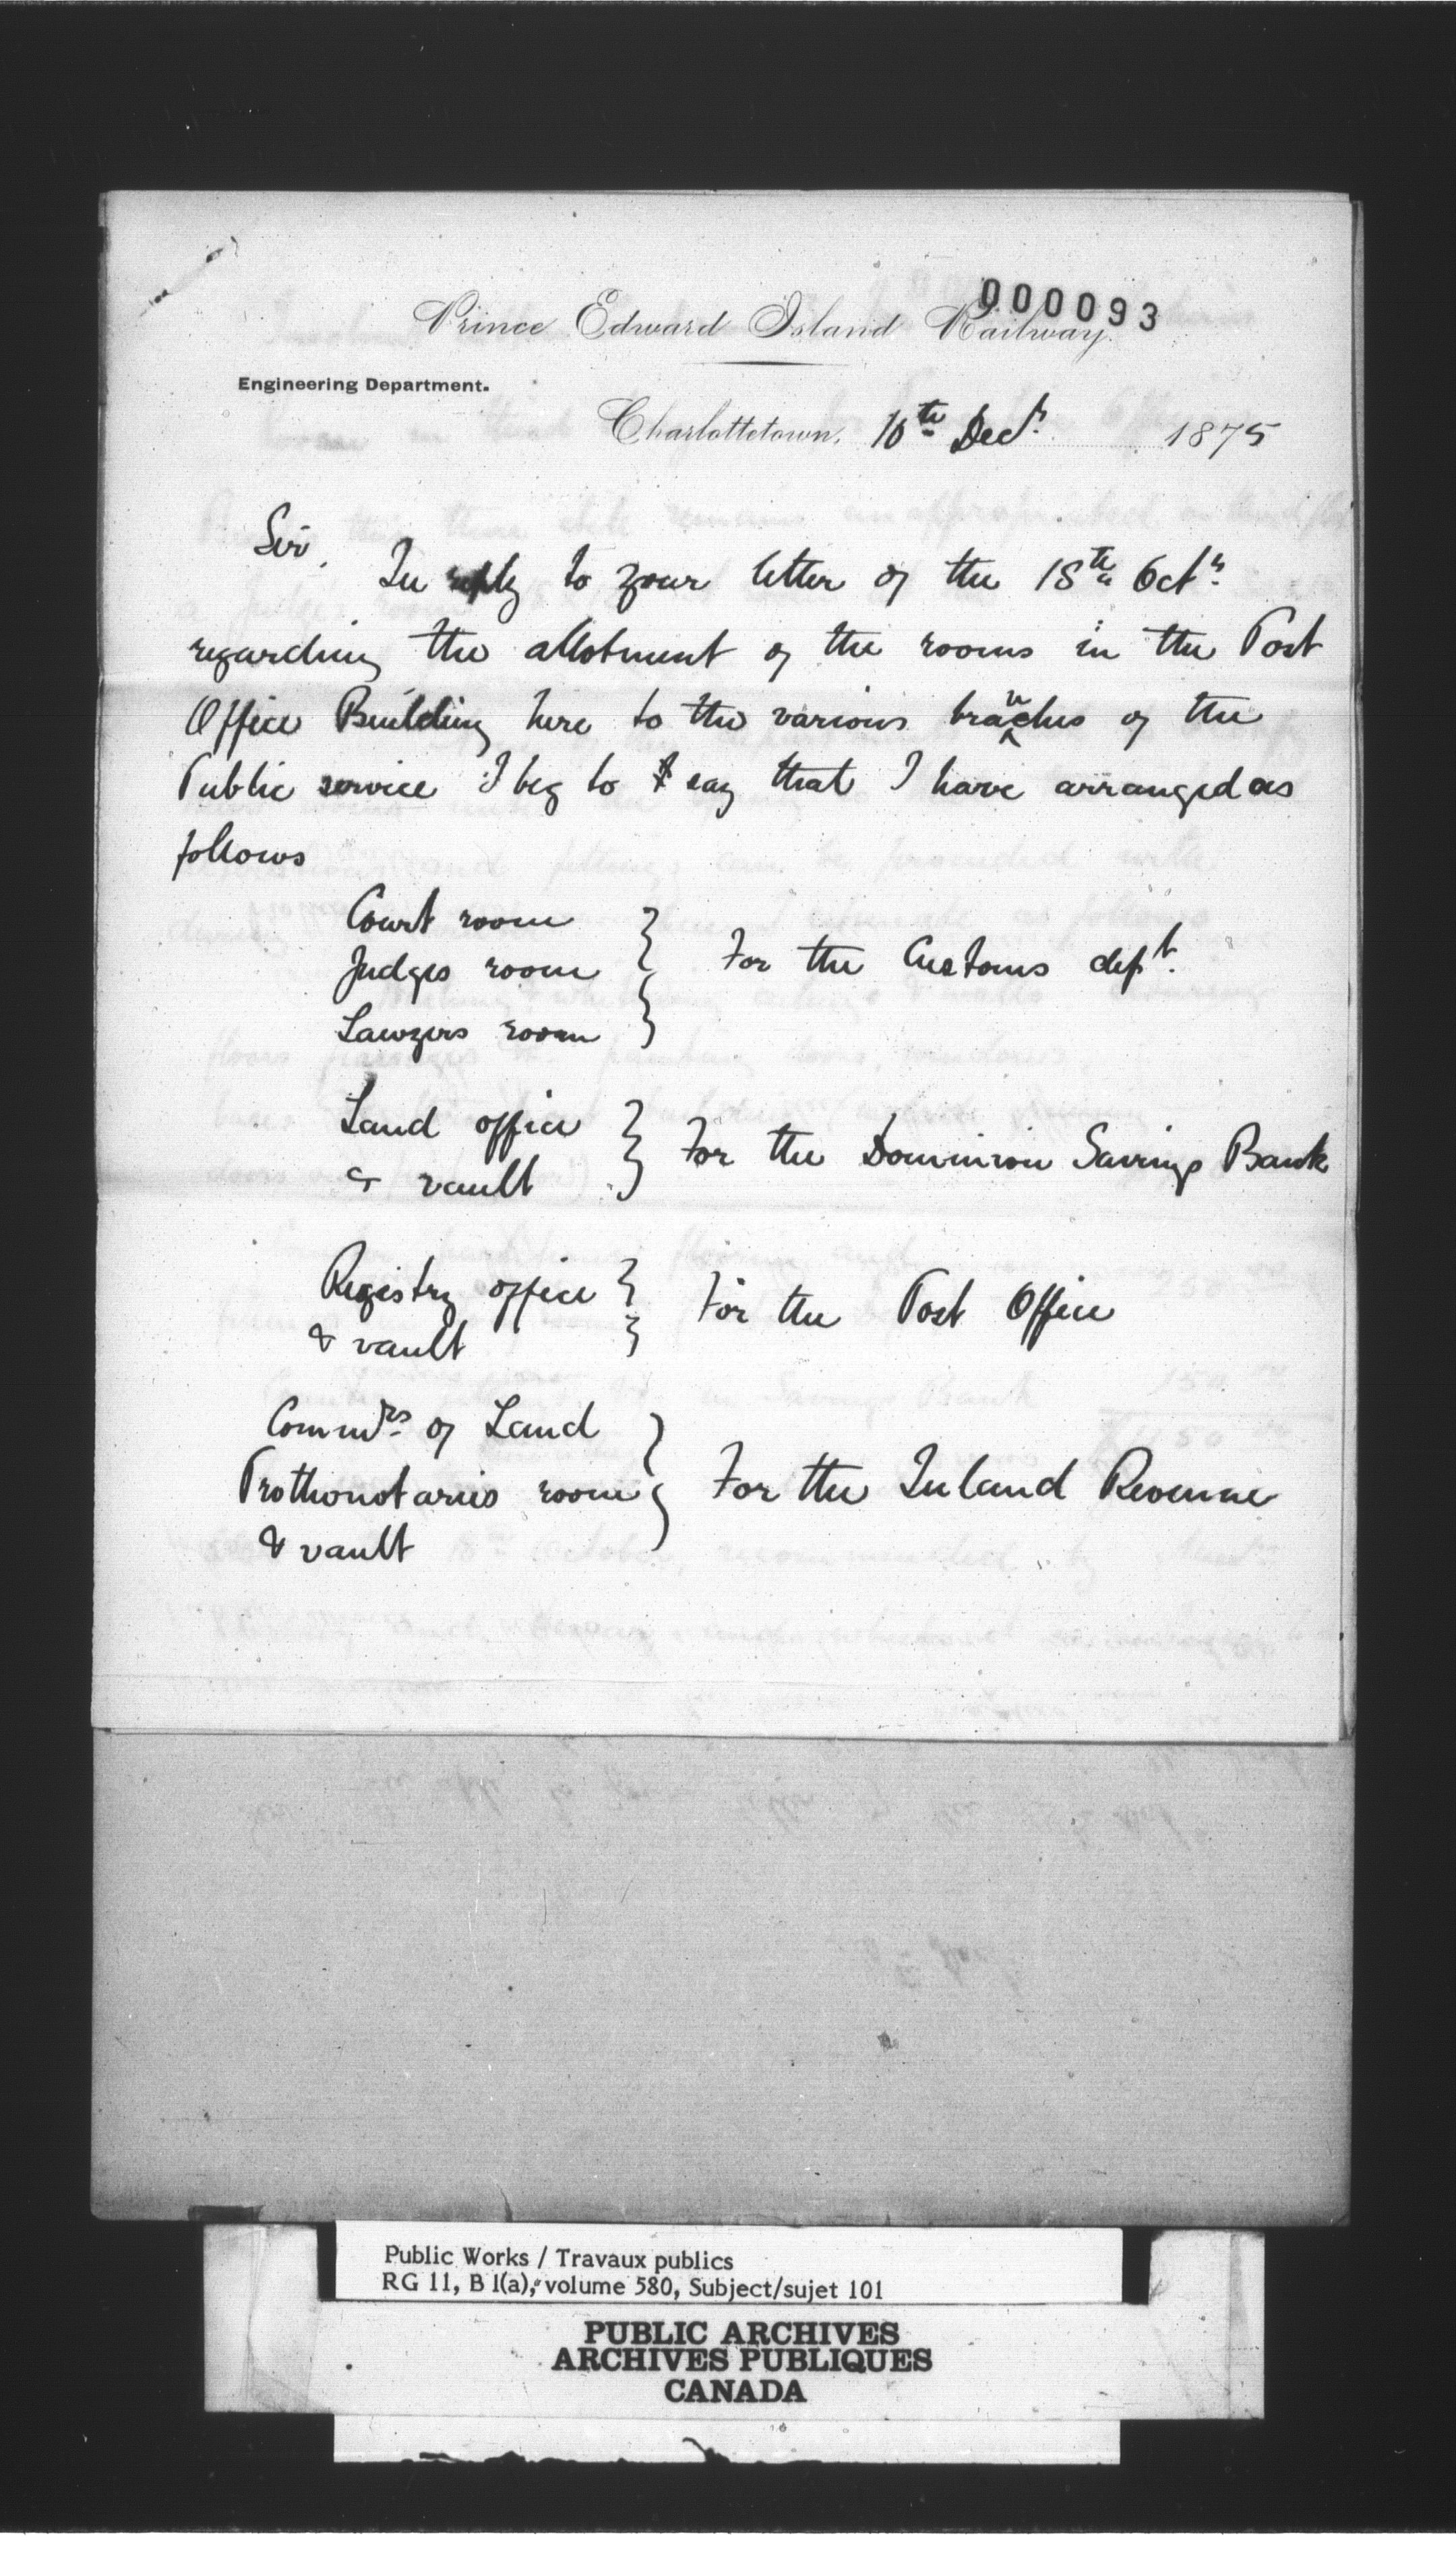 000093
Prince Edward Island Railway.
Engineering Department.
Charlottetown, 10th Decr. 1875
Sir,
In reply to your letter of the 18th Octr.
regarding the allotment of the rooms in the Post
Office Building here to the various branches of the
Public service I beg to say that I have arranged as
follows
Court room
Judges room } For the Customs dept.
Lawyers room
Land office
& vault } For the Dominion Savings Bank
Registry office
& vault } For the Post Office
Commrs of Land
Prothonotaries room } For the Inland Revenue
& vault
Public Works / Travaux publics
RG 11, B 1(a), volume 580, Subject/sujet 101
PUBLIC ARCHIVES
ARCHIVES PUBLIQUES
CANADA